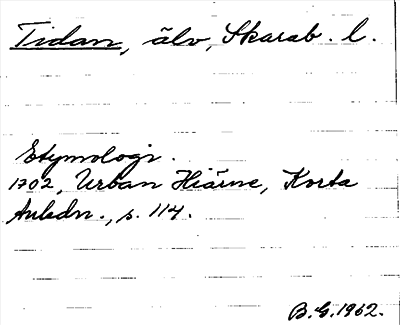 Tidan, älv, Skarab. l.
Etymologi.
1702, Urban Hiärne, Korta
Anledn., s. 114.
B.G. 1962.